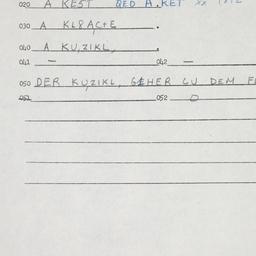 020 A KEST QED A.KET XX
030 A KLRACTE .
040 A KU,ZIKL,
041 — 042 —
050 DER KUZIKL, GEHER ZU DEM
051 052 0